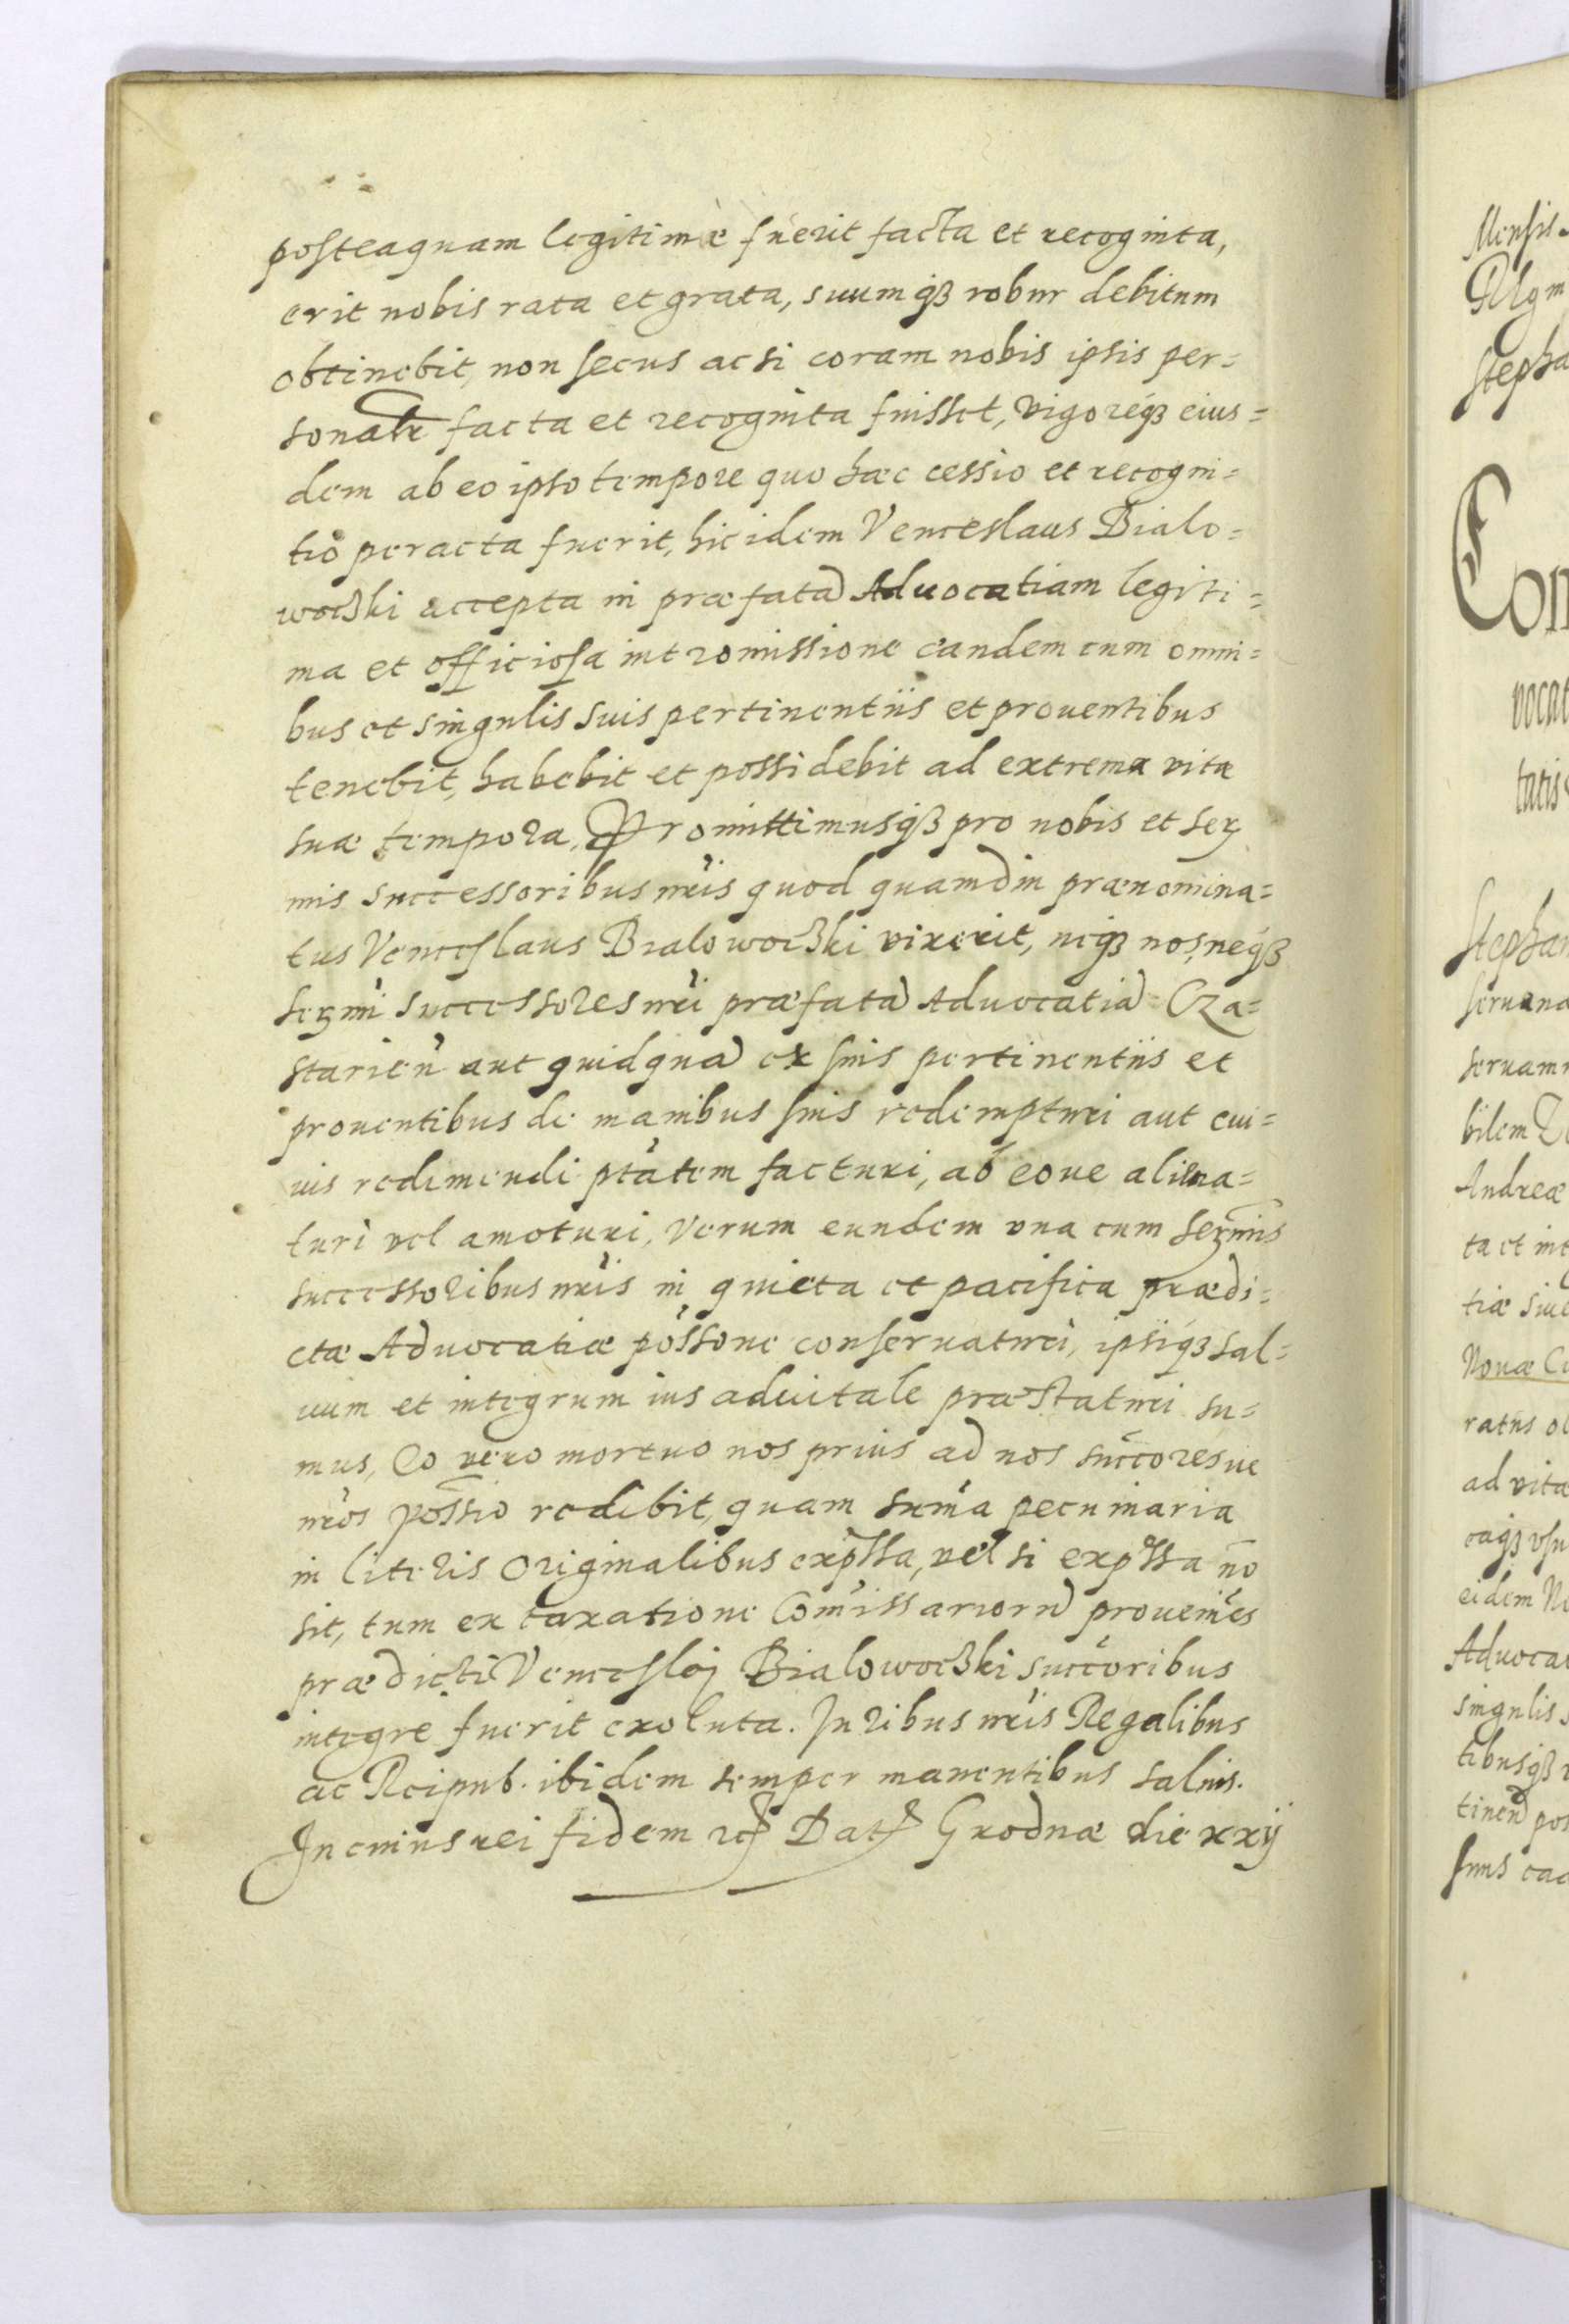 posteaquam legitimè fuerit facta et recognita,
erit nobis rata et grata, suumqꝫ robur debitum
obtinebit, non secus ac si coram nobis ipsis per=
sonalr̃ facta et recognita fuisset, vigoreqꝫ eius=
dem ab eo ipso tempore quo hæc cessio et recogni=
tio peracta fuerit, hic idem Venceslaus Bialo=
woczki accepta in præfatā Aduocatiam legiti=
ma et officiosa intromissione eandem cum omni=
bus et singulis suis pertinentiis et prouentibus
tenebit, habebit et possidebit ad extrema vitæ
suæ tempora, Promittimusqꝫ pro nobis et Serꝫ
mis successoribus nr̃is quod quamdiu prænomina=
tus Venceslaus Bialowoczki vixerit, neqꝫ nos, neqꝫ
Serꝫmi successores nr̃i præfatā Aduocatiā Cza=
starień aut quidquā ex suis pertinentiis et
prouentibus de manibus suis redempturi aut cui=
uis redimendi ptãtem facturi, ab eoue aliena=
turi vel amoturi, Verum eundem vna cum Serꝫmis
successoribus nr̃is in quieta et pacifica prædi=
ctæ Aduocatiæ possõne conseruaturi, ipsiqꝫ sal=
uum et integrum ius aduitale præstaturi su=
mus, Eo vero mortuo nos prius ad nos succ̃oresue
nr̃os possio redibit, quam sum̃a pecuniaria
in literis originalibus exp̃ssa, vel si exp̃ssa nõ
sit, tum ex taxatione Com̃issariorū proueniẽs
prædicti Venceslai Bialowoczki succ̃oribus
integre fuerit exoluta. Iuribus nr̃is Regalibus
ac Reipub. ibidem semper manentibus saluis.
In cuius rei fidem etc̃ Dat̃ Grodnæ die xxij
Mensis
Regni
Stepha
Con
vocat
tatis
Stephan
seruand
seruam
bilem
Andreæ
ta et int
tiæ siue
Nouæ Ci
ratus ol
ad vita
eaqꝫ vsu
eidem
Aduocat
singulis s
tibusqꝫ
tinend pos
suus